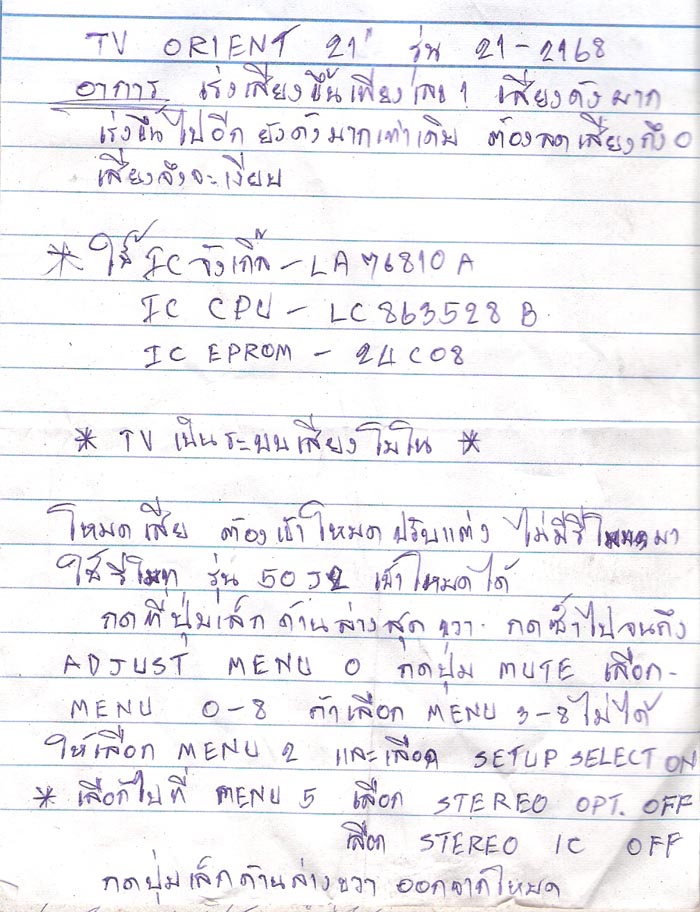 TV ORIENT 21" รุ่น 21-2168
อาการ เร่งเสียงขึ้นเพียงเลข 1 เสียงดังมาก
เร่งขึ้นไปอีก ยังดังมากเท่าเดิม ต้องลดเสียงถึง 0
เสียงจึงจะเงียบ
* ใช้ IC จังเกิ้ล - LA76810A
IC CPU - LC863528B
IC EPROM - 24C08
* TV เป็นระบบเสียงโมโน *
โหมดเสีย ต้องเข้าโหมดปรับแต่ง ไม่มีรีโมทมา
ใช้รีโมท รุ่น 50J2 เข้าโหมดได้
กดที่ปุ่มเล็กด้านล่างสุดขวา. กดซ้ำไปจนถึง
ADJUST MENU 0 กดปุ่ม MUTE เลือก-
MENU 0-8 ถ้าเลือก MENU 3-8 ไม่ได้
ให้เลือก MENU 2 และเลือก SETUP SELECT ON
* เลือกไปที่ MENU 5 เลือก STEREO OPT. OFF
เลือก STEREO IC OFF
กดปุ่มเล็กด้านล่างขวา ออกจากโหมด